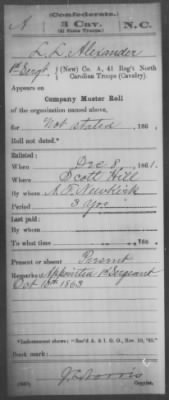 (Confederate.)
A 3 Cav. N.C.
(41 State Troops.)
L. L. Alexander
1st Sergt., (New) Co. A, 41 Reg't North
Carolina Troops (Cavalry).
Appears on
Company Muster Roll
of the organization named above,
for Not stated, 186 .
Roll not dated.*
Enlisted:
When Dec 8, 186 1.
Where Scott Hill
By whom A. T. Newkirk
Period 3 yrs
Last paid:
By whom
To what time , 186 .
Present or absent Present
Remarks: Appointed 1st Sergeant
Oct 10th 1863
Book mark:
Copyist.